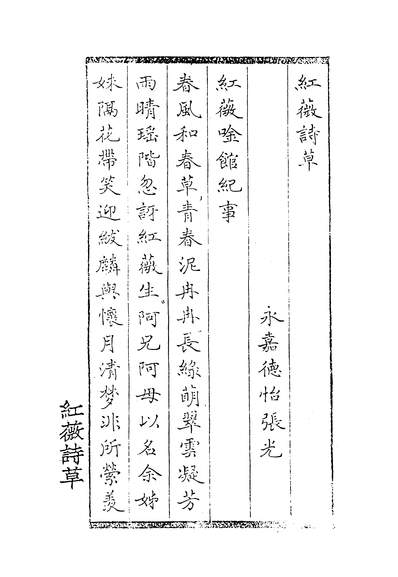 紅薇詩草
永嘉德怡張光
紅薇唫館紀事
春風和春草青春泥冉冉長綠萌翠雲凝芳
雨晴瑤階忽訝紅薇生阿兄阿母以名余姊
妹隔花帶笑迎紱麟與懷月清梦非所縈羨
紅薇詩草